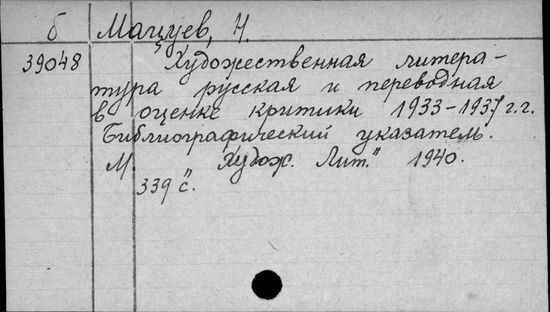 б Мацуев, Н.
39048 Художественная литера-
тура русская и переводная
в оценке критики 1933-1937 г.г.
Библиографический указатель.
М. „Худож. Лит." 1940.
339 с.